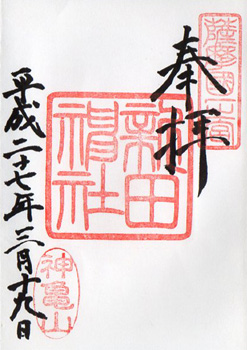 薩摩國一宮
奉拝
新田神社
平成二十七年三月十九日
神亀山